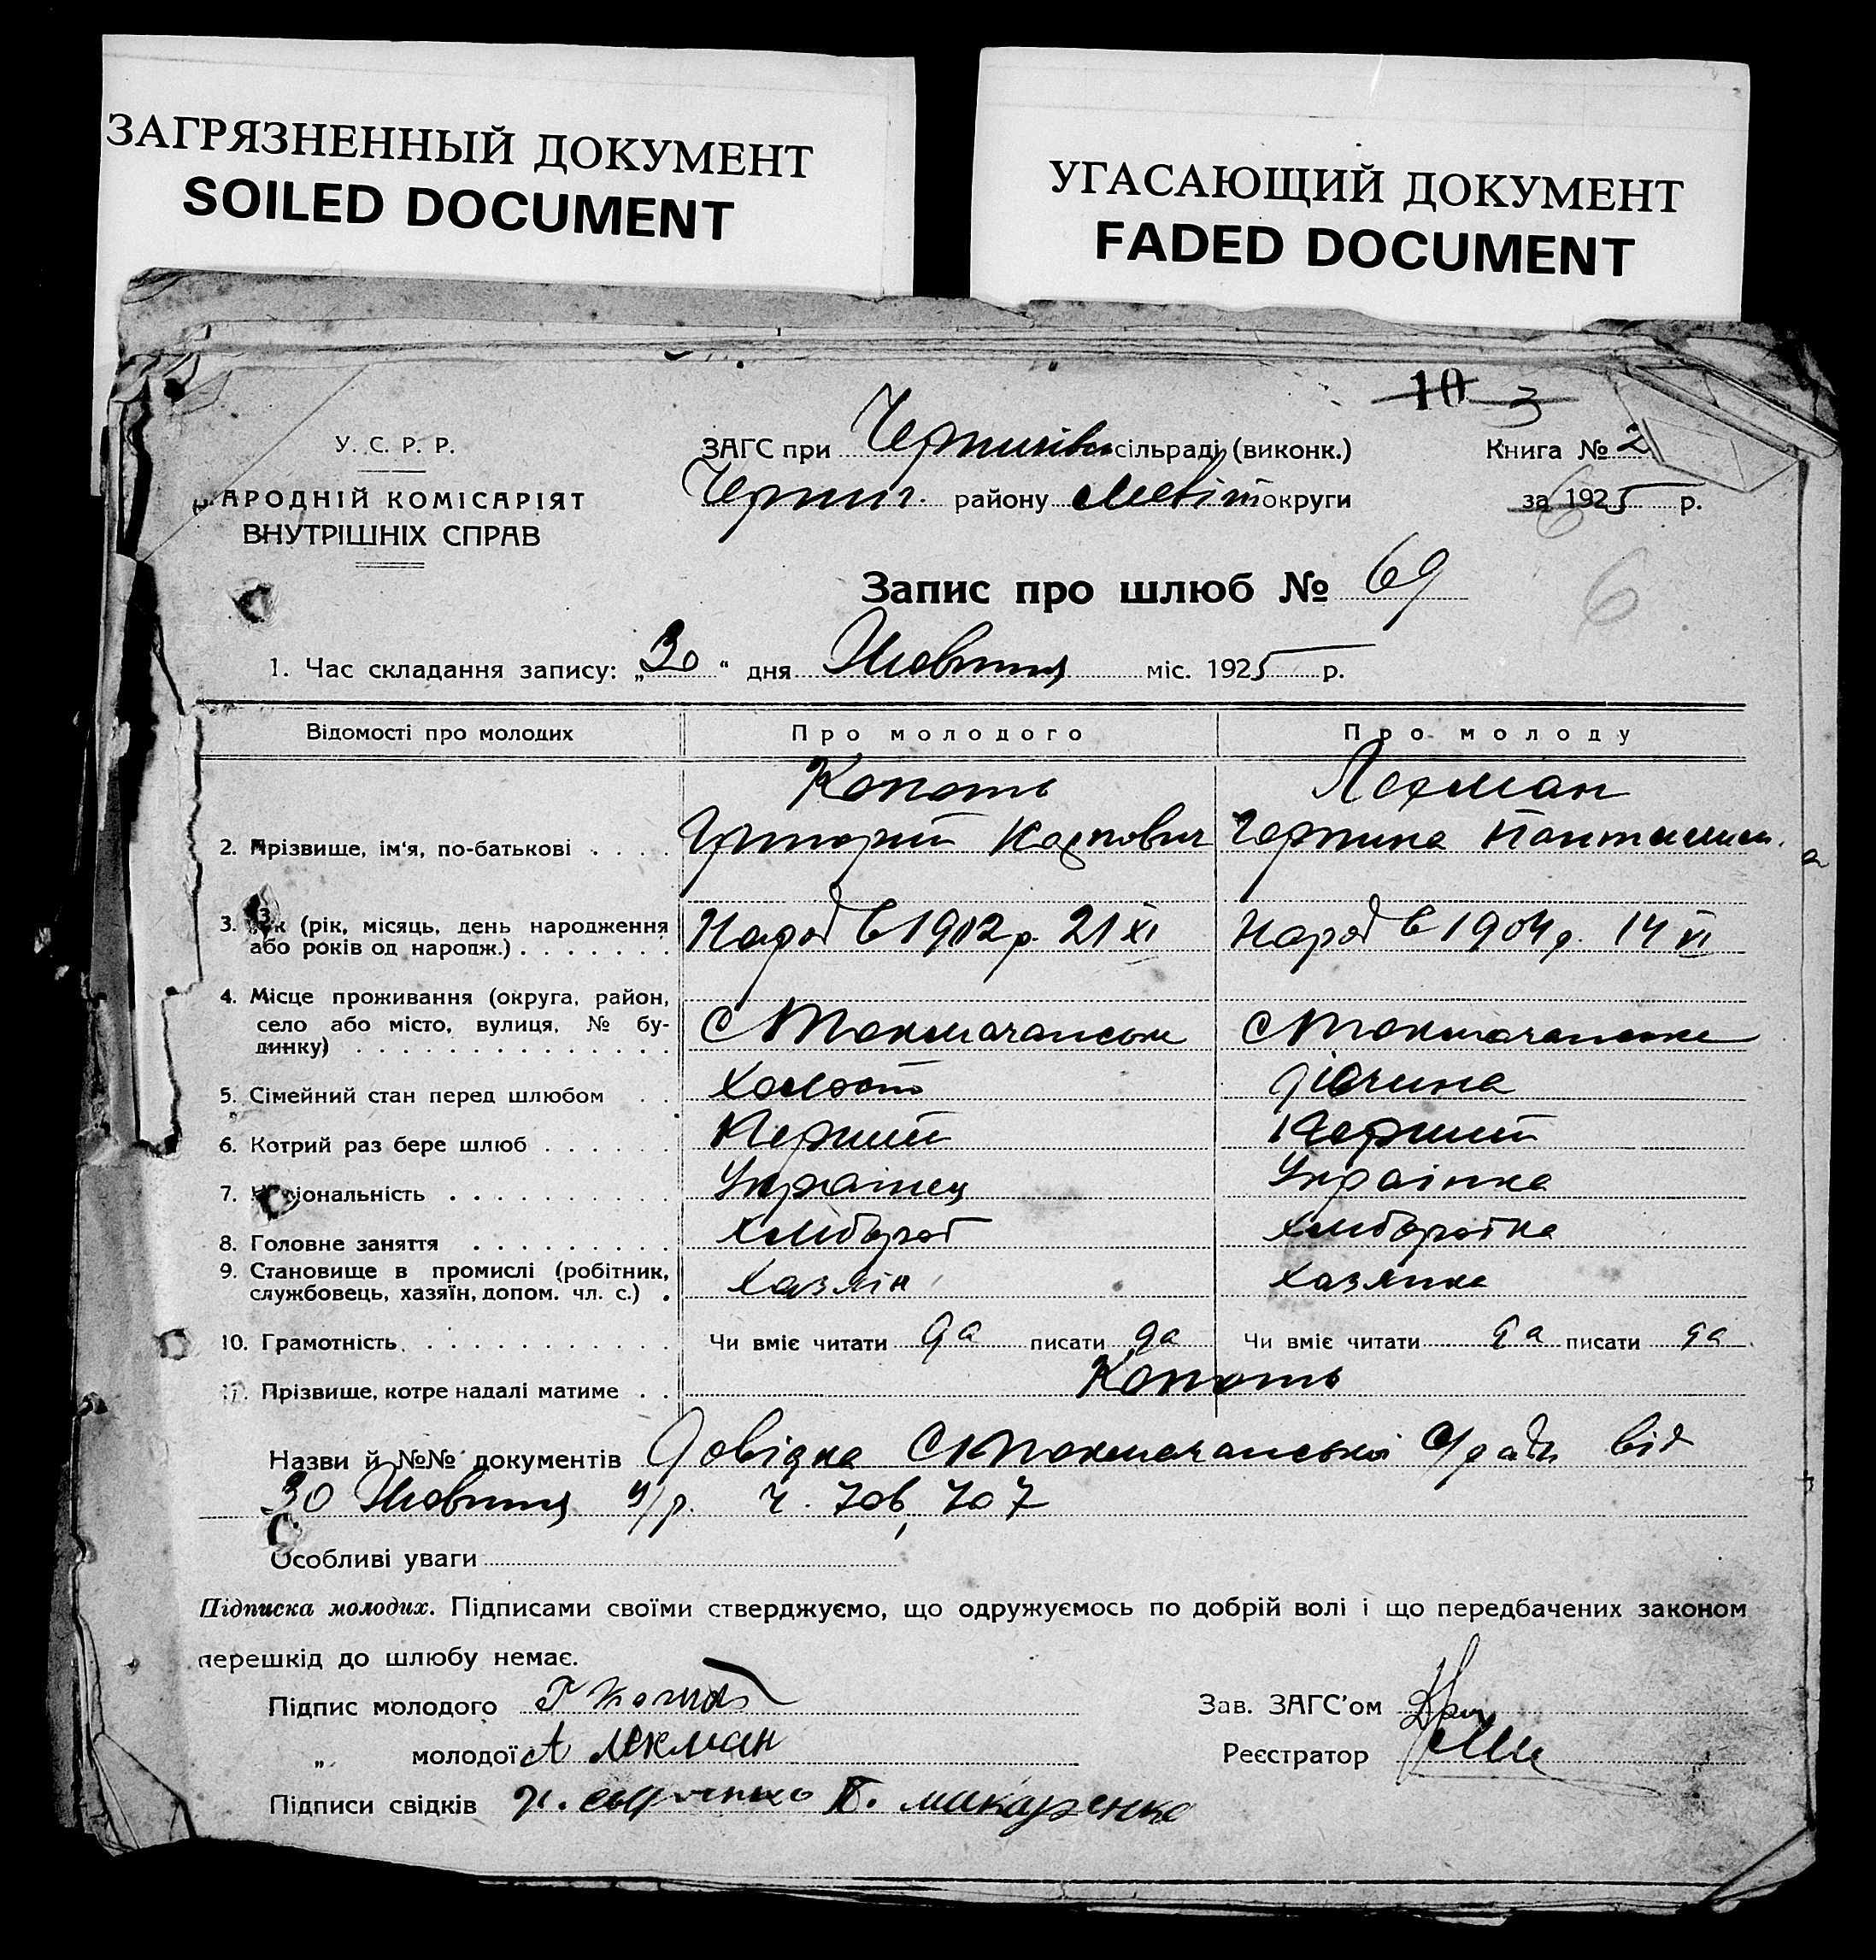 ЗАГРЯЗНЕННЫЙ ДОКУМЕНТ
SOILED DOCUMENT
УГАСАЮЩИЙ ДОКУМЕНТ
FADED DOCUMENT
10 3
У. С. Р. Р.
НАРОДНІЙ КОМІСАРІЯТ
ВНУТРІШНІХ СПРАВ
ЗАГС при Чернигівськ сільраді (виконк.)
Черниг. району Меліт округи
Книга № 2
за 1925 р.
6
Запис про шлюб № 69
1. Час складання запису: „30“ дня Жовтня міс. 1925 р.
Відомості про молодих Про молодого Про молоду
Копоть Лекман
2. Прізвище, ім'я, по-батькові . . . . Григорій Карпович
3. Вік (рік, місяць, день народження
або років од народж.) . . . . . . . Народ в 1902 р. 21 XI Народ в 1904 р. 14 VI
4. Місце проживання (округа, район,
село або місто, вулиця, № бу-
динку) . . . . . . . . . . . . . . С Токмачанське С Токмачанське
5. Сімейний стан перед шлюбом . . Холост дівчина
6. Котрий раз бере шлюб . . . . . . Перший Перший
7. Національність . . . . . . . . . . Українец Українка
8. Головне заняття . . . . . . . . . Хлибороб хлиборобка
9. Становище в промислі (робітник,
службовець, хазяїн, допом. чл. с.) . Хазяін хазяика
10. Грамотність . . . . . . . . . . . . Чи вміє читати да писати да Чи вміє читати да писати да
11. Прізвище, котре надалі матиме . . Копоть
Назви й №№ документів Довідка С Токмачанської с/ради від
30 Жовтня ц/р. ч. 706, 707
Особливі уваги
Підписка молодих. Підписами своїми стверджуємо, що одружуємось по добрій волі і що передбачених законом
перешкід до шлюбу немає.
Підпис молодого Г Копоть Зав. ЗАГС'ом
„ молодої А Лекман Реєстратор
Підписи свідків П. макаренко